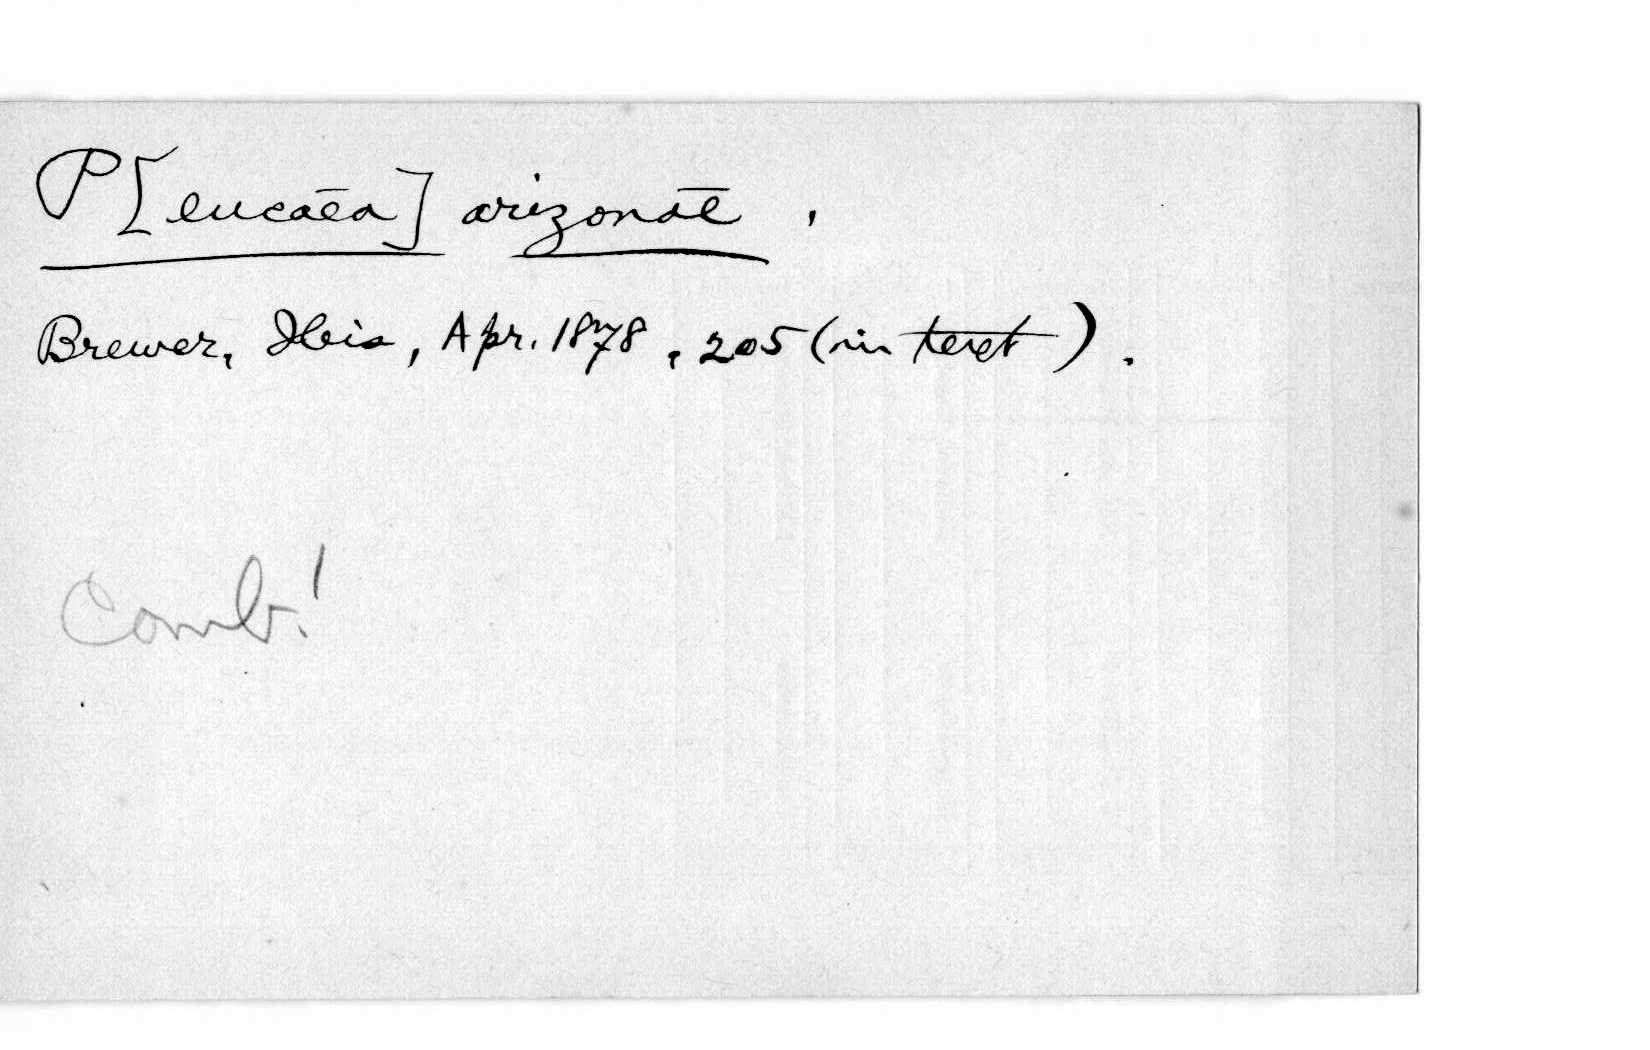 P[eucaea] arizonae,
Brewer, Ibis, Apr. 1878, 205 (in text).
Comb.!